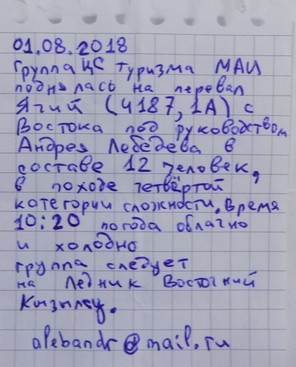 01.08.2018
Группа ЦС туризма МАИ
поднялась на перевал
Ягий (4187, 1А) с
Востока под руководством
Андрея Лебедева в
составе 12 человек,
в походе четвёртой
категории сложности. Время
10:20 погода облачно
и холодно
группа следует
на Ледник Восточный
Кызплсу.
alebandr@mail.ru